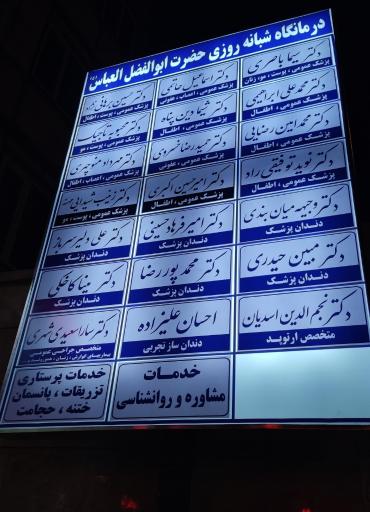 درمانگاه شبانه روزی حضرت ابوالفضل العباس (ع)
دکتر سیما باصری
پزشک عمومی ، پوست ، مو، زنان
دکتر اسماعیل حاتمی
پزشک عمومی ، اعصاب ، عفونی
دکتر حسین برهانی نژاد
پزشک عمومی ، پوست ، اطفال
دکتر محمدعلی ابراهیمی
پزشک عمومی ، اطفال
دکتر شیما دین پناه
پزشک عمومی ، اطفال
دکتر محبوبه تاجیک
پزشک عمومی ، پوست ، مو
دکتر محمدامین رضایی
پزشک عمومی ، اطفال
دکتر حمیدرضا خسروی
پزشک عمومی ، عفونی
دکتر مهرداد منوچهری
پزشک عمومی ، اعصاب ، اطفال
دکتر نوید توفیقی راد
پزشک عمومی ، اطفال
دکتر امیرحسین اکبری
پزشک عمومی ، اطفال
دکتر زینب
پزشک عمومی ، پوست ، مو
دکتر وجیهه میان بندی
دندان پزشک
دکتر امیر فرهاد حسینی
دندان پزشک
دکتر علی دلیر سرباز
دندان پزشک
دکتر مبین حیدری
دندان پزشک
دکتر محمد پوررضا
دندان پزشک
دکتر مینا کاخکی
دندان پزشک
دکتر نجم الدین اسدیان
متخصص ارتوپد
احسان علیزاده
دندان ساز تجربی
دکتر سارا سعیدی
متخصص جراحی عمومی
خدمات
مشاوره و روانشناسی
خدمات پرستاری
تزریقات ، پانسمان
ختنه ، حجامت